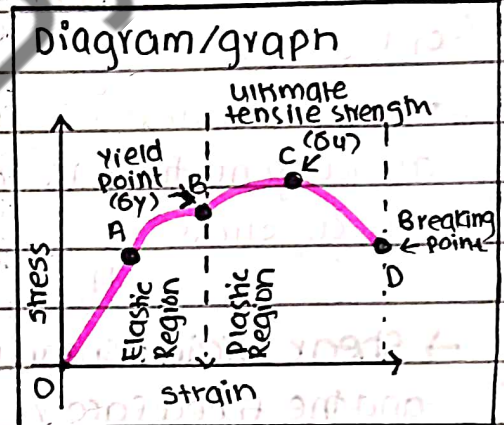 Diagram/graph
ultimate
tensile strength
(σu)
C
Yield
point
(σy)
B
A
Breaking
point
D
Stress
Elastic
Region
Plastic
Region
O
strain